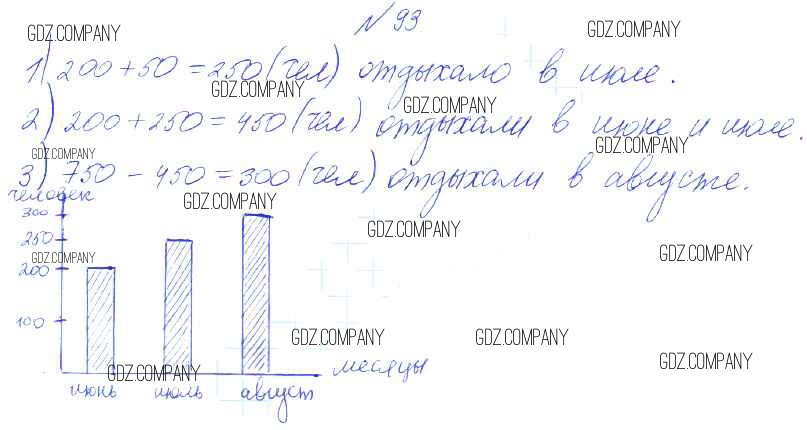 № 93
GDZ.COMPANY GDZ.COMPANY
1) 200 + 50 = 250 (чел) отдыхало в июле.
GDZ.COMPANY GDZ.COMPANY
2) 200 + 250 = 450 (чел) отдыхали в июне и июле.
GDZ.COMPANY GDZ.COMPANY
3) 750 - 450 = 300 (чел) отдыхали в августе.
человек
GDZ.COMPANY
300
GDZ.COMPANY
250
GDZ.COMPANY GDZ.COMPANY
200
100
GDZ.COMPANY GDZ.COMPANY GDZ.COMPANY
месяцы
GDZ.COMPANY
июнь июль август